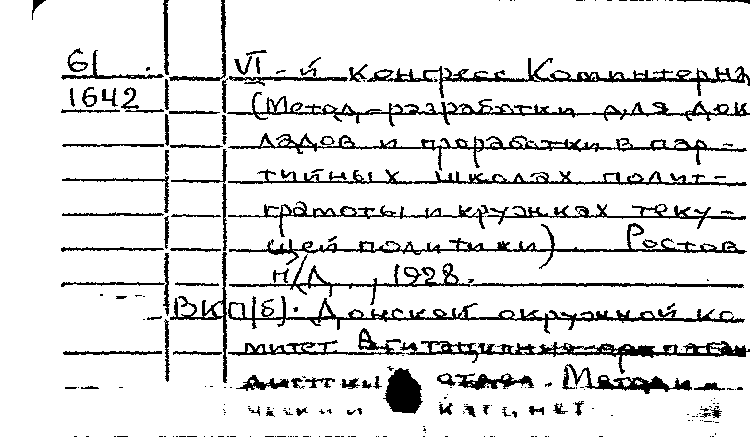 61 VI-й конгресс Коминтерна,
1642 (Метод.-разработки для док
ладов и проработки в пар-
тийных школах полит-
грамоты и кружках теку-
щей политики). Ростов
н/Д., 1928.
ВКП(б). Донской окружной ко
митет. Агитационно-пропаган
дистский отдел. Методи-
ческий кабинет